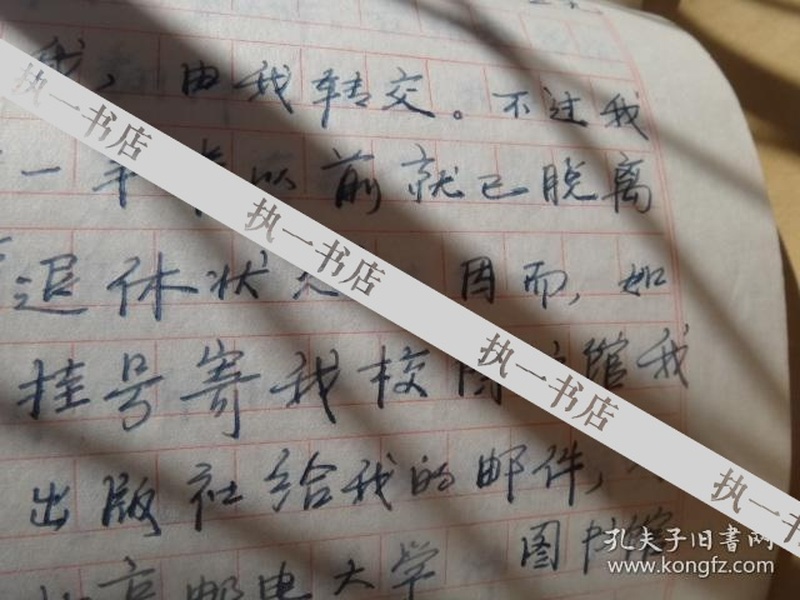 我，由我转交。不过我
一年半以前就已脱离
退休状态 因而，如
挂号寄我校图书馆我
出版社给我的邮件，
图书馆
北京邮电大学
执一书店
执一书店
执一书店
执一书店
孔夫子旧書网
www.kongfz.com